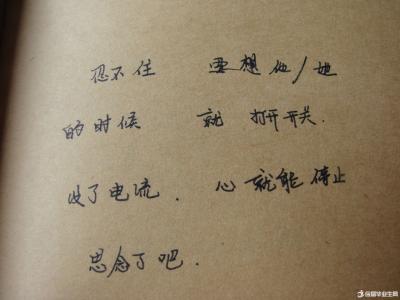 忍不住 要想他/她
的时候 就 打开开关.
没了电流. 心就能停止
思念了吧.